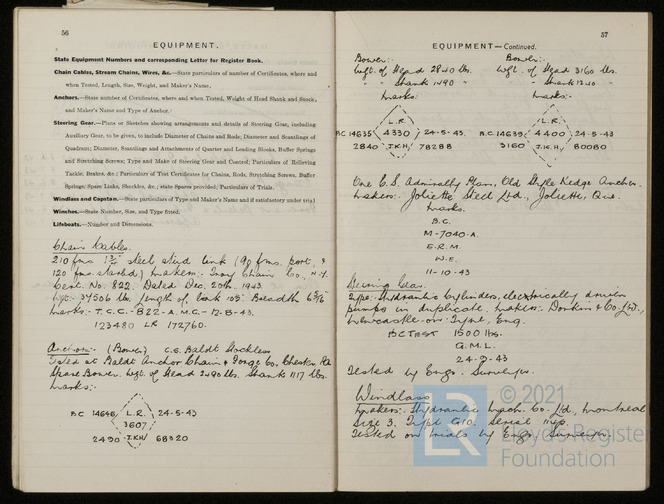 56
EQUIPMENT.
State Equipment Numbers and corresponding Letter for Register Book.
Chain Cables, Stream Chains, Wires, &c.—State particulars of number of Certificates, where and
when Tested, Length, Size, Weight, and Maker's Name.
Anchors.—State number of Certificates, where and when Tested, Weight of Head Shank and Stock,
and Maker's Name and Type of Anchor.
Steering Gear.—Plans or Sketches showing arrangements and details of Steering Gear, including
Auxiliary Gear, to be given, to include Diameter of Chains and Rods; Diameter and Scantlings of
Quadrant; Diameter, Scantlings and Attachments of Quarter and Leading Blocks, Buffer Springs
and Stretching Screws; Type and Make of Steering Gear and Control; Particulars of Relieving
Tackle; Brakes, &c.; Particulars of Test Certificates for Chains, Rods, Stretching Screws, Buffer
Springs; Spare Links, Shackles, &c.; state Spares provided; Particulars of Trials.
Windlass and Capstan.—State particulars of Type and Maker's Name and if satisfactory under trial
Winches.—State Number, Size, and Type fitted.
Lifeboats.—Number and Dimensions.
Chain Cables.
210 fms steel stud link (90 fms. port, &
120 fms. starbd) makers:- Chain Co., N.Y.
Cert. No. 822. Dated Dec. 20th, 1943.
Wgt:- 34506 lbs. Length of link Breadth
marks:- T.C.C.-822-A.M.C.- 12-8-43.
123480 LR 172760.
Anchors:- (Bower) C.S. Baldt Stockless
Tested at Baldt Anchor Chain & Forge Co. Chester, Pa
Spare Bower. Wgt. of Head 2490 lbs. Shank 1117 lbs.
Marks:-
BC 14646 L.R. 24-5-43
3607
2490 J.K.H 68320
57
EQUIPMENT—Continued.
Bower: Bower:-
Wgt. of Head 2840 lbs. Wgt. of Head 3160 lbs.
" Shank 1490 " " Shank 1240 "
Marks: Marks:-
L.R. L.R.
BC 14635 4330 24-5-43. B.C. 14639 4400 24-5-43
2840 J.K.H 78288 3160 J.K.H. 80080
One C.S. Admiralty Plan, Old Style Kedge Anchor.
makers:- Joliette Steel Ltd., Joliette, Que.
Marks.
B.C.
M-7040-A.
E.R.M.
W.E.
11-10-43
Steering Gear.
Type:- Hydraulic Cylinders, electrically driven
pumps in duplicate. makers:- Donkin & Co. Ltd.,
Newcastle-on-Tyne, Eng.
BC TEST 1500 lbs.
G.M.L.
24-9-43
Tested by Engr. Surveyor.
Windlass
Makers:- Hydraulic Mach. Co. Ltd, Montreal
Size 3. Type G10. Serial
Tested on trials by Engr. Surveyor.
© 2021
LR
Lloyd's Register
Foundation